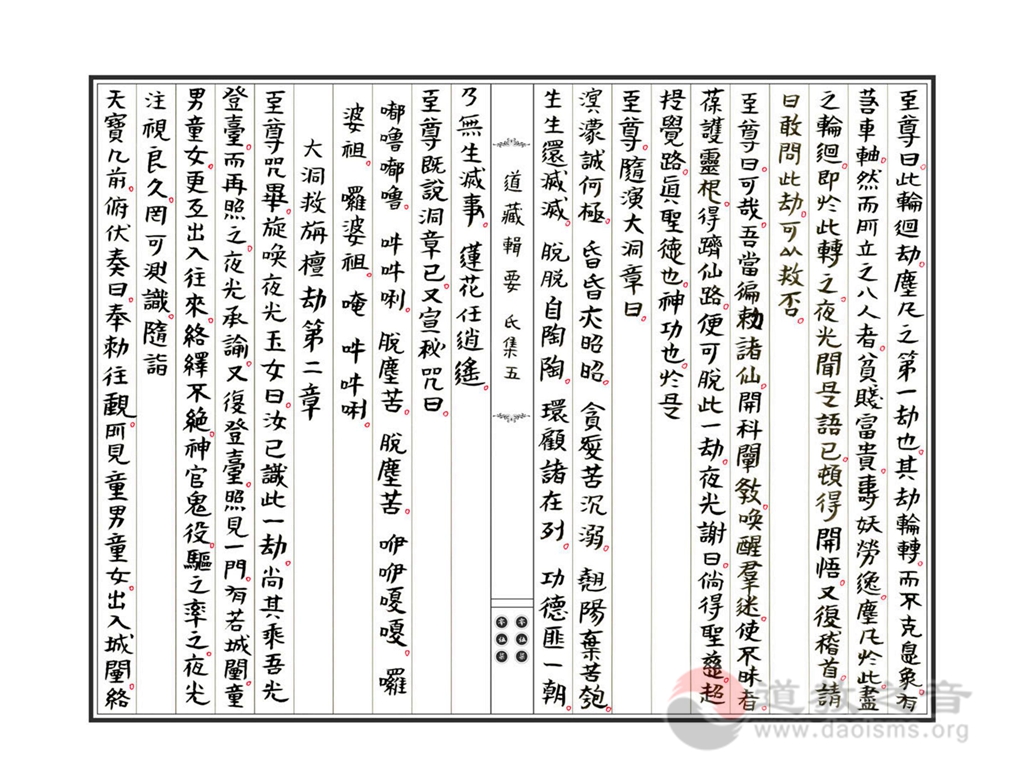 至尊曰。此輪迴劫。塵凡之第一劫也。其劫輪轉。而不克息。象有
若車軸。然而所立之八人者。貧賤富貴。壽妖勞逸。塵凡於此盡
之輪迴。即於此轉之。夜光聞是語已。頓得開悟。又復稽首。請
曰敢問此劫。可以救否。
至尊曰。可哉。吾當徧勅諸仙。開科闡教。喚醒羣迷。使不昧者。
葆護靈根。得躋仙路。便可脫此一劫。夜光謝曰。倘得聖慈。超
授覺路。眞聖德也。神功也。於是
至尊。隨演大洞章曰。
溟濛誠何極。昏昏夾昭昭。貪癡苦沉溺。翹陽棄苦匏。
生生還滅滅。脫脫自陶陶。環顧諸在列。功德匪一朝。
道藏輯要 氐集五
乃無生滅事。蓮花任逍遙。
至尊既說洞章已。又宣秘咒曰。
嘟嚕嘟嚕。吽吽唎。脫塵苦。脫塵苦。咿咿嘎嘎。囉
婆祖。囉婆祖。唵吽吽唎。
大洞救旃檀劫第二章
至尊咒畢。旋喚夜光玉女曰。汝已識此一劫。尚其乘吾光
登臺。而再照之。夜光承諭。又復登臺。照見一門。有若城闉。童
男童女。更互出入往來。絡繹不絕。神官鬼役。驅之率之。夜光
注視良久。罔可測識。隨詣
天寶几前。俯伏奏曰。奉勅往觀。所見童男童女。出入城闉。絡
道教之音
www.daoisms.org